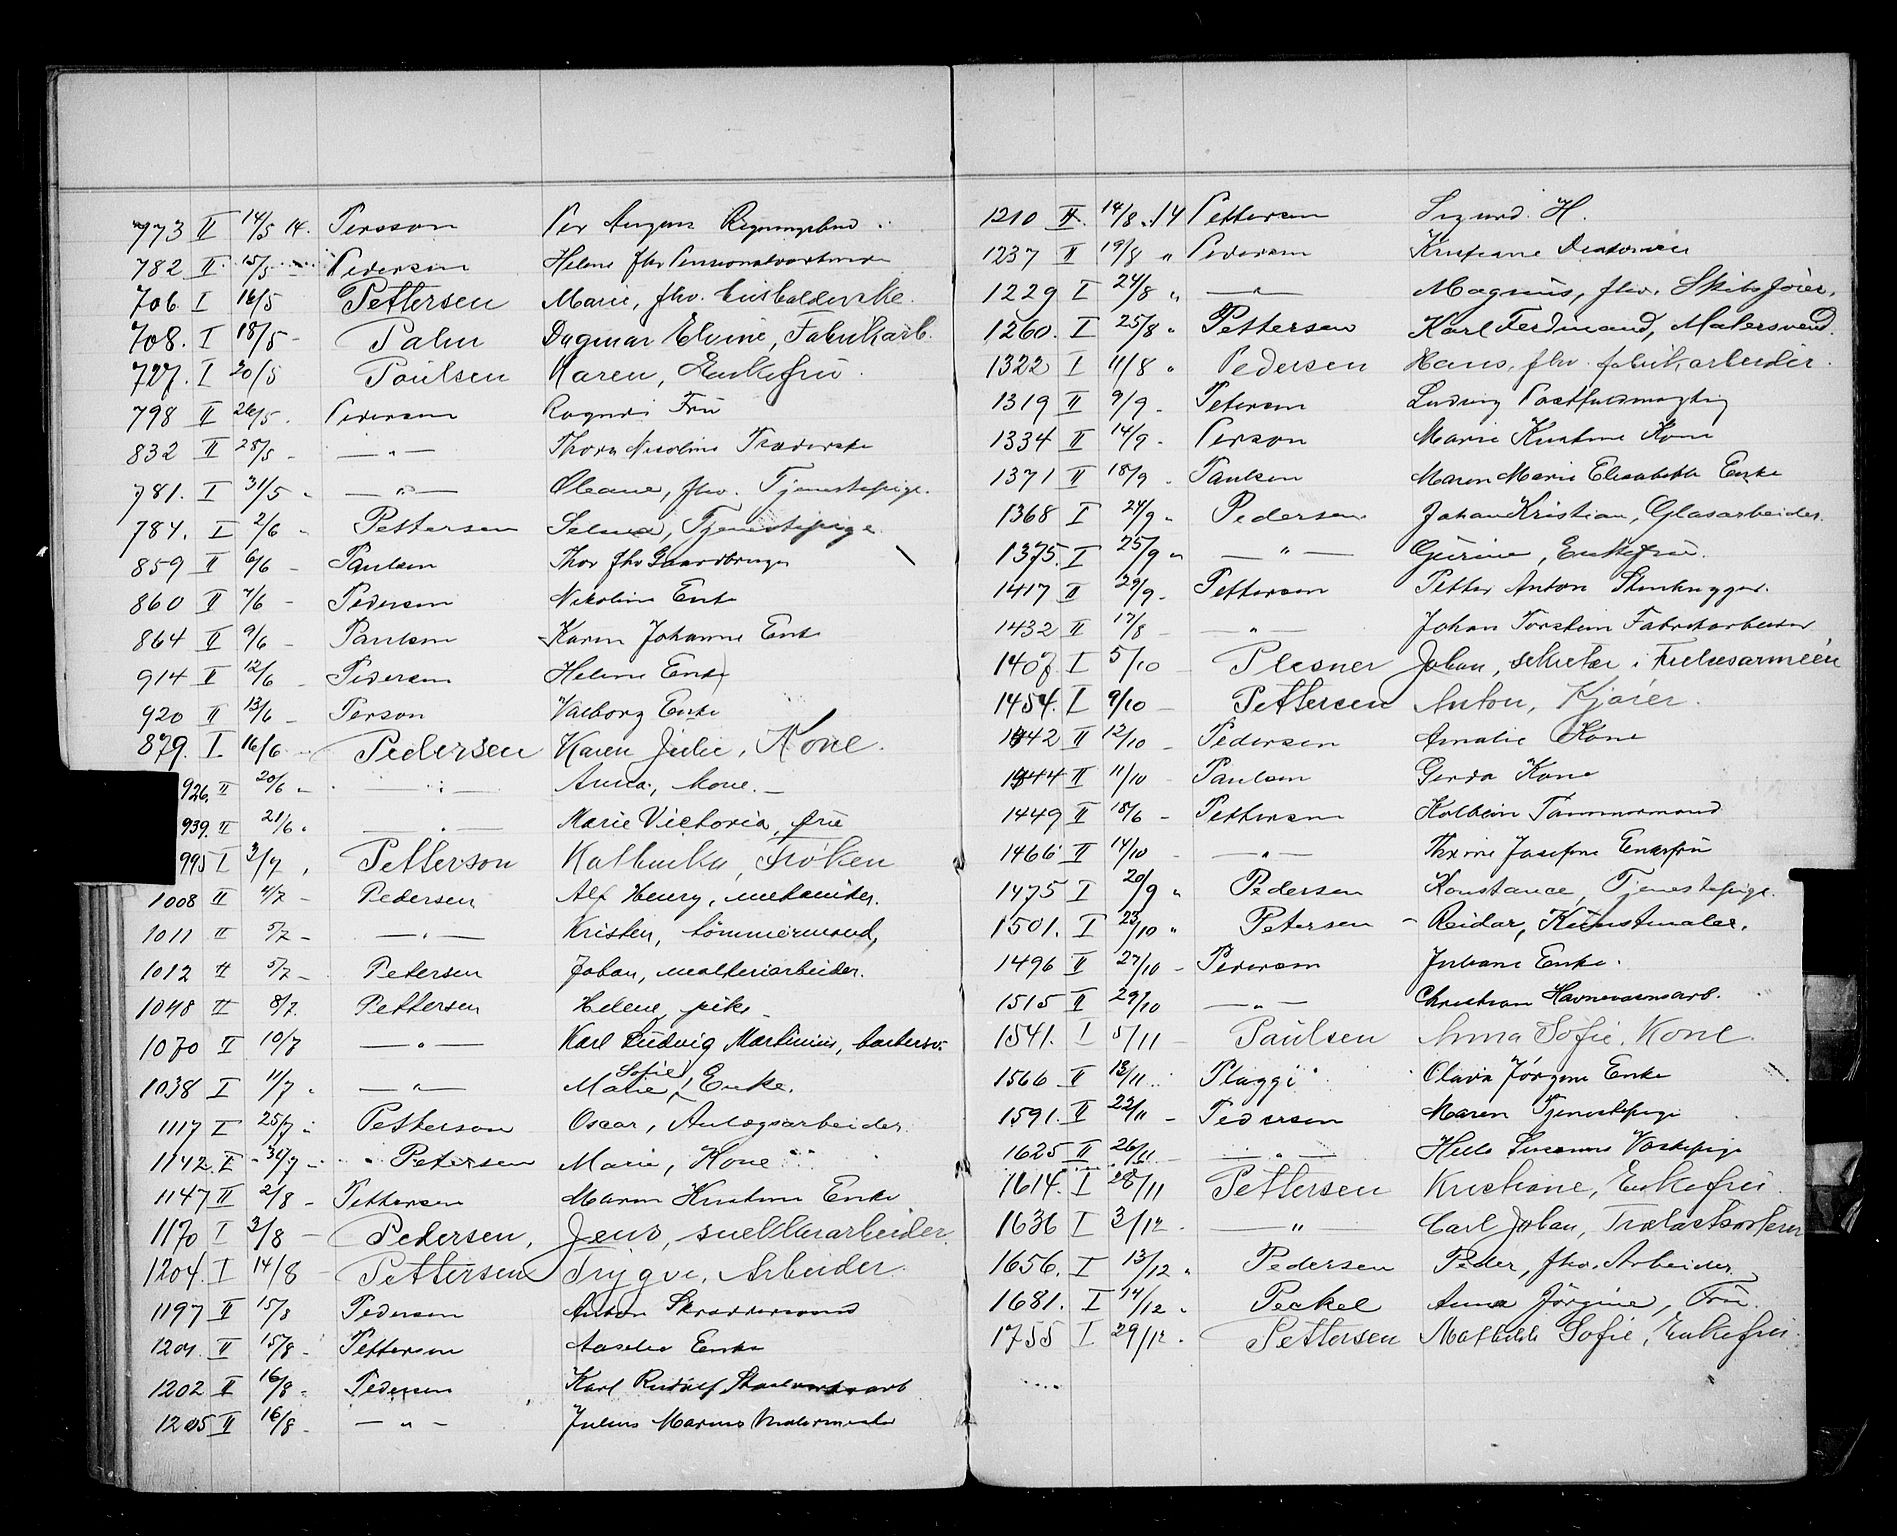 773 II 14/5 14. Persson Per August
782 II 15/5 Pedersen Helene fhv Pensionatvertinde
706 I 16/5 Pettersen Marie, fhv. Husholderske.
708. I 18/5 - Palm Dagmar Elvine, Fabrikarb.
727. I 20/5 Paulsen Karen, Enkefru.
798 II 26/5. Pedersen Ragndi Fru
832 II 28/5 - — " — Thora Nicoline
781. I 31/5 " — " — Oleane, fhv. Tjenestepige.
784. I 2/6 " Pettersen Selma, Tjenestepige
859 II 6/6 - Paulsen Thor fhv Gaardbruger
860 II 7/6 - Pedersen Nikoline Enke
864 II 9/6 - Paulsen Karen Johanne Enke
914 II 12/6 - Pedersen Helene Enke
920 II 13/6 - Person Valborg Enke
879. I 16/6 Pedersen Karen Julie, Kone.
926. II 20/6 " — " — Anna, Kone. —
939. II 21/6 " — " — Marie Victoria, frue
995 I 3/7, Petterson Kathinka, Frøken
1008 II 4/7 - Pedersen Alf Henry, mekaniker.
1011 II 5/7 - — " — Kristen, tömmermand,
1012 II 5/7 - Petersen Johan, malteriarbeider.
1048 II 8/7. Pettersen Helene, pike
1070 II 10/7 — " — Karl Ludvig Martinius,
1038 I 11/7 " — " — Marie Sofie, Enke.
1117 I 25/7 " Petterson Oscar, Anlægsarbeider
1142. I - 30/7 - " Petersen Marie, Kone
1147 II 2/8 - Pettersen Maren Kristine Enke
1170 I 3/8 - Pedersen, Jens,
1204. I 14/8 - Pettersen Trygve, Arbeider.
1197 II 15/8 Pedersen Anton Skræddersvend
1201. II 15/8 - Pettersen Enke
1202 II 16/8 " Pedersen Karl Rudolf
1205 II 16/8 - — " — Julius Marius Malermester
1210 II 14/8 . 14 Pettersen Sigurd. H.
1237 II 19/8 " Pedersen Kristiane
1229 I 24/8 " — " — Magnus, fhv. Skibsfører.
1260. I 25/8 " Pettersen Karl Ferdinand, Malersvend.
1322 I 11/8 " Pedersen Hans, fhv. fabrikarbeider.
1319 II 9/9 - Petersen Ludvig Postfuldmægtig
1334 II 14/9 - Person Marie Kristine Kone
1371 II 18/9 - Paulsen Maren Marie Elisabeth Enke
1368 I 24/9 " Pedersen Johan Kristian, Glasarbeider.
1375. I 25/9 " — " — Gurine, Enkefru.
1417 II 29/9 - Pettersen Petter Anton Stenhugger.
1432 II 17/8 - — " — Johan Torstein Fabrikarbeider
1407. I 5/10 - Plesner Johan, sekretær i Frelsesarmeen
1454. I 9/10 - Pettersen Anton, Kjører.
1442 II 12/10 - Pedersen Amalie Kone
1444 II 11/10 - Paulsen Gerda Kone
1449 II 18/6 - Pettersen Kolbein Tømmermand
1466 II 14/10 - — " — Josefine Enkefru
1475 I 20/9 " Pedersen Konstance, Tjenestepige.
1501. I 23/10 " Petersen - Reidar, Kunstmaler.
1496 II 27/10 - Pedersen Juliane Enke.
1515 II 29/10 — " — Christian Havnevæsensarb.
1541. I 5/11 - Paulsen Anna Sofie, Kone.
1566 II 13/11 Plaggi Olava Jørgine Enke
1591. II 22/11 - Pedersen Maren Tjenestepige
1625 II 26/11 - — " — Helle Susanne Vaskepige
1614. I 28/11 Pettersen Kristiane, Enkefru.
1636 I 3/12. — " — Carl Johan,
1656. I 13/12 " Pedersen Peder, fhv. Arbeider.
1681. I 14/12 " Peckel Anna Jörgine, Fru.
1755 I 29/12. Pettersen Mathilde Sofie, Enkefru.